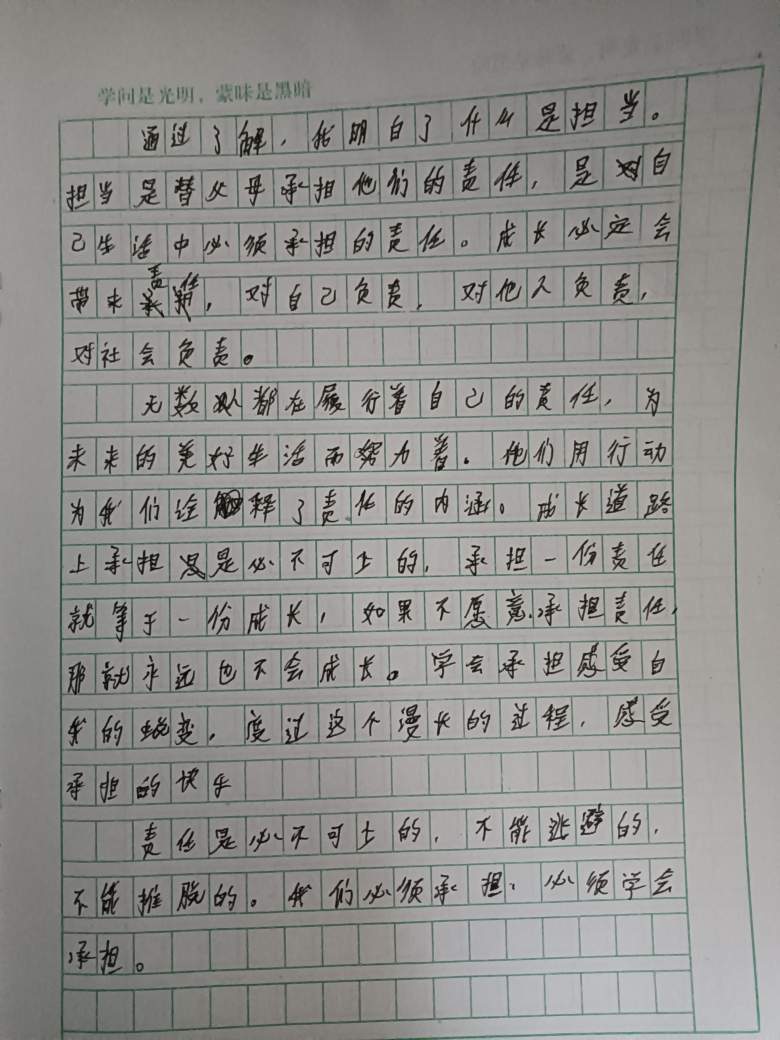 学问是光明，蒙昧是黑暗
通过了解，我明白了什么是担当。
担当是替父母承担他们的责任，是对自
己生活中必须承担的责任。成长必定会
带来责任，对自己负责，对他人负责，
对社会负责。
无数人都在履行着自己的责任，为
未来的美好生活而努力着。他们用行动
为我们诠释了责任的内涵。成长道路
上承担是必不可少的，承担一份责任
就等于一份成长，如果不愿意承担责任，
那就永远也不会成长。学会承担感受自
我的蜕变，度过这个漫长的过程，感受
承担的快乐
责任是必不可少的，不能逃避的，
不能推脱的。我们必须承担，必须学会
承担。